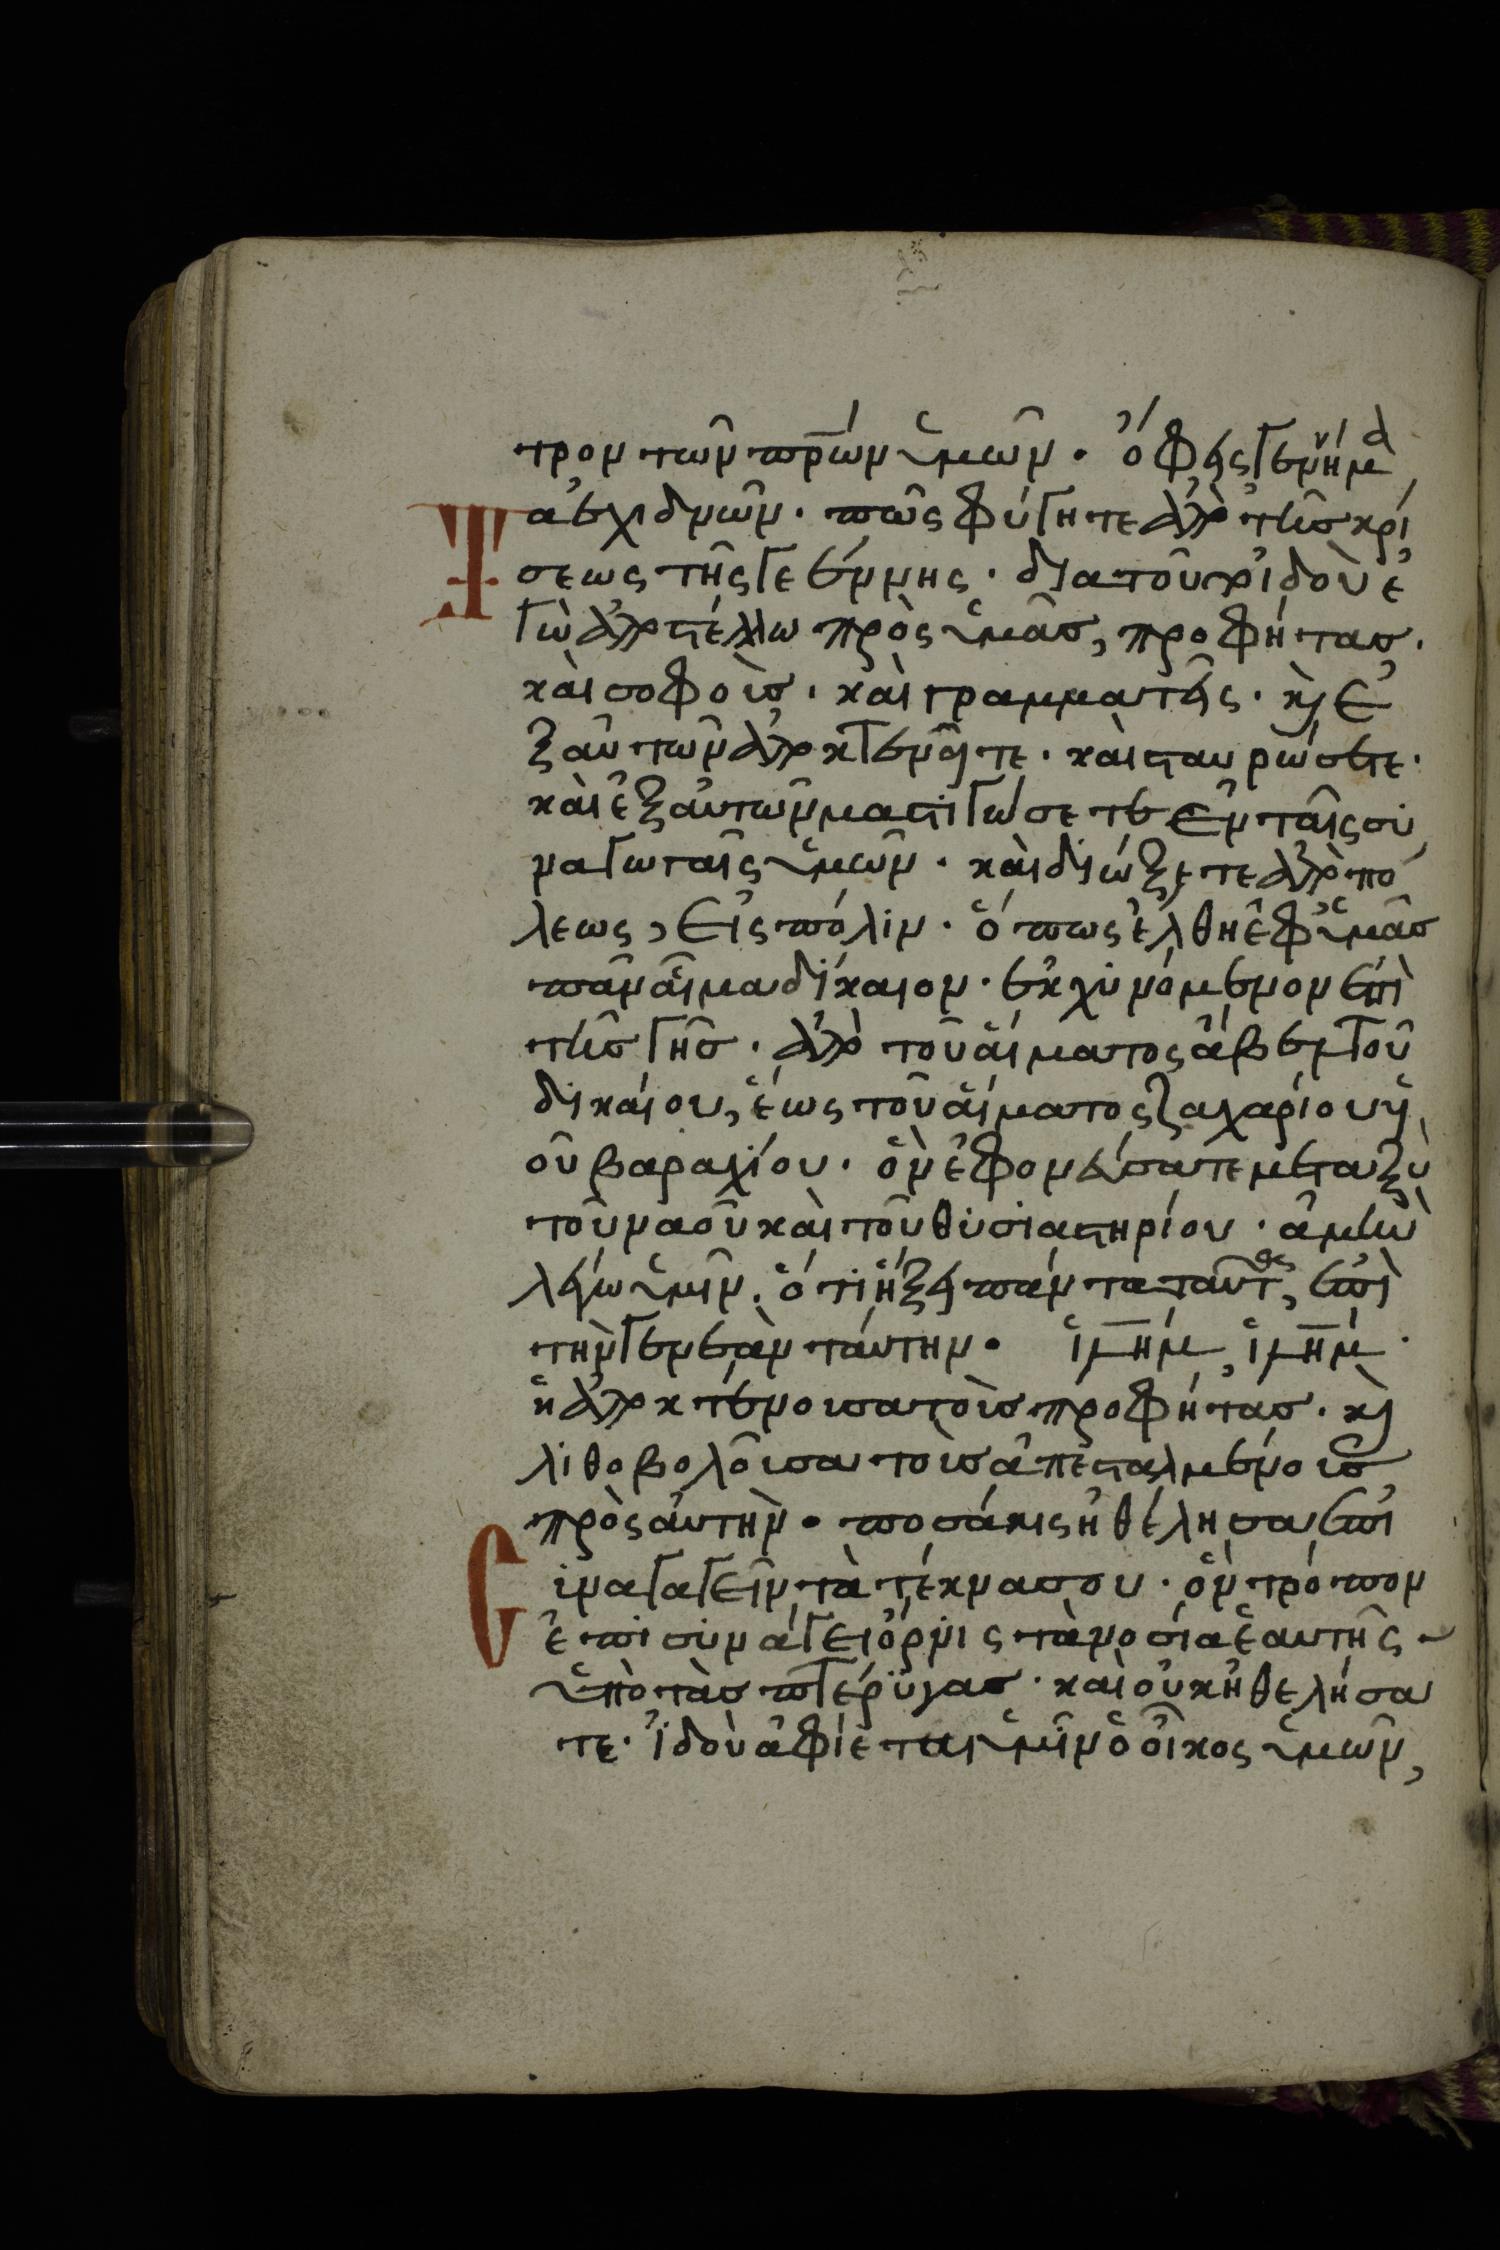 τρον τῶν πρ̅ων ὑμῶν. ὄφεις γεννήμα
τα ἐχιδνῶν. πῶς φύγητε ἀπὸ τῆς κρί
σεως τῆς γεέννης. διατοῦτο ἰδοὺ ἐ
γὼ ἀποστέλλω πρὸς ὑμᾶσ, προφήτασ.
καὶ σοφοὺσ. καὶ γραμματεῖς. κὶ ἐ
ξ αὐτῶν ἀποκτενεῖτε. καὶ σταυρώσετε.
καὶ ἐξ αὐτῶν μαστιγώσετε ἐν ταῖς συ
ναγωγαῖς ὑμῶν. καὶ διώξετε ἀπὸ πό
λεως, εἰς πόλιν. ὅπως ἔλθη ἐφ' ὑμᾶσ
πᾶν αἷμα δίκαιον. ἐκχυνόμενον ἐπὶ
τῆσ γῆσ. ἀπὸ τοῦ αἵματος ἄβελ τοῦ
δικαίου, ἕως τοῦ αἵματος ζαχαρίου υἱ
οῦ βαραχίου. ὃν ἐφονεύσατε μεταξὺ
τοῦ ναοῦ καὶ τοῦ θυσιαστηρίου. ἀμὴν
λέγω ὑμῖν. ὅτι ἥξει πάντα ταῦτα, ἐπὶ
τὴν γενεὰν ταύτην. ἱλ̅ημ, ἱλ̅ημ.
ἡ ἀποκτένουσα τοὺσ προφήτασ. κὶ
λιθοβολοῦσα τοὺσ ἀπεσταλμένουσ
πρὸς αὐτὴν. ποσάκις ἠθέλησα ἐπι
συναγαγεῖν τὰ τέκνα σου. ὃν τρόπον
ἐπισυνάγει ὄρνις τὰ νοσία ἑαυτῆς
ὑπὸ τὰσ πτέρυγασ. καὶ οὐκ ἠθελήσα
τε. ἰδοὺ ἀφίεται ὑμῖν ὁ οἶκος ὑμῶν,